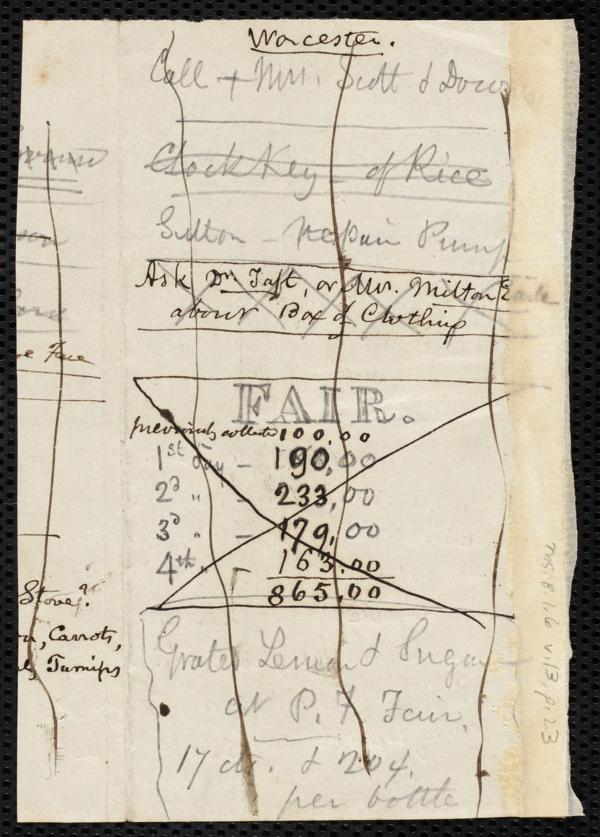 Worcester.
Call + Mrs. Scott & Dow
Clock Key - of Rice
Sutton - Repair Pump
Ask Dr. Taft, or Mr. Milton
about Box of Clothing
e Face
FAIR.
previously collected 100,00
1st day - 190,00
2d " 233,00
3d " - 179,00
4th " - 163.00
865,00
Stove?
Carrots,
Turnips
Grated Lemon & Sugar
at P. F. Fair,
17 cts. & 204.
per bottle
Ms B.1.6 v.13, p.23